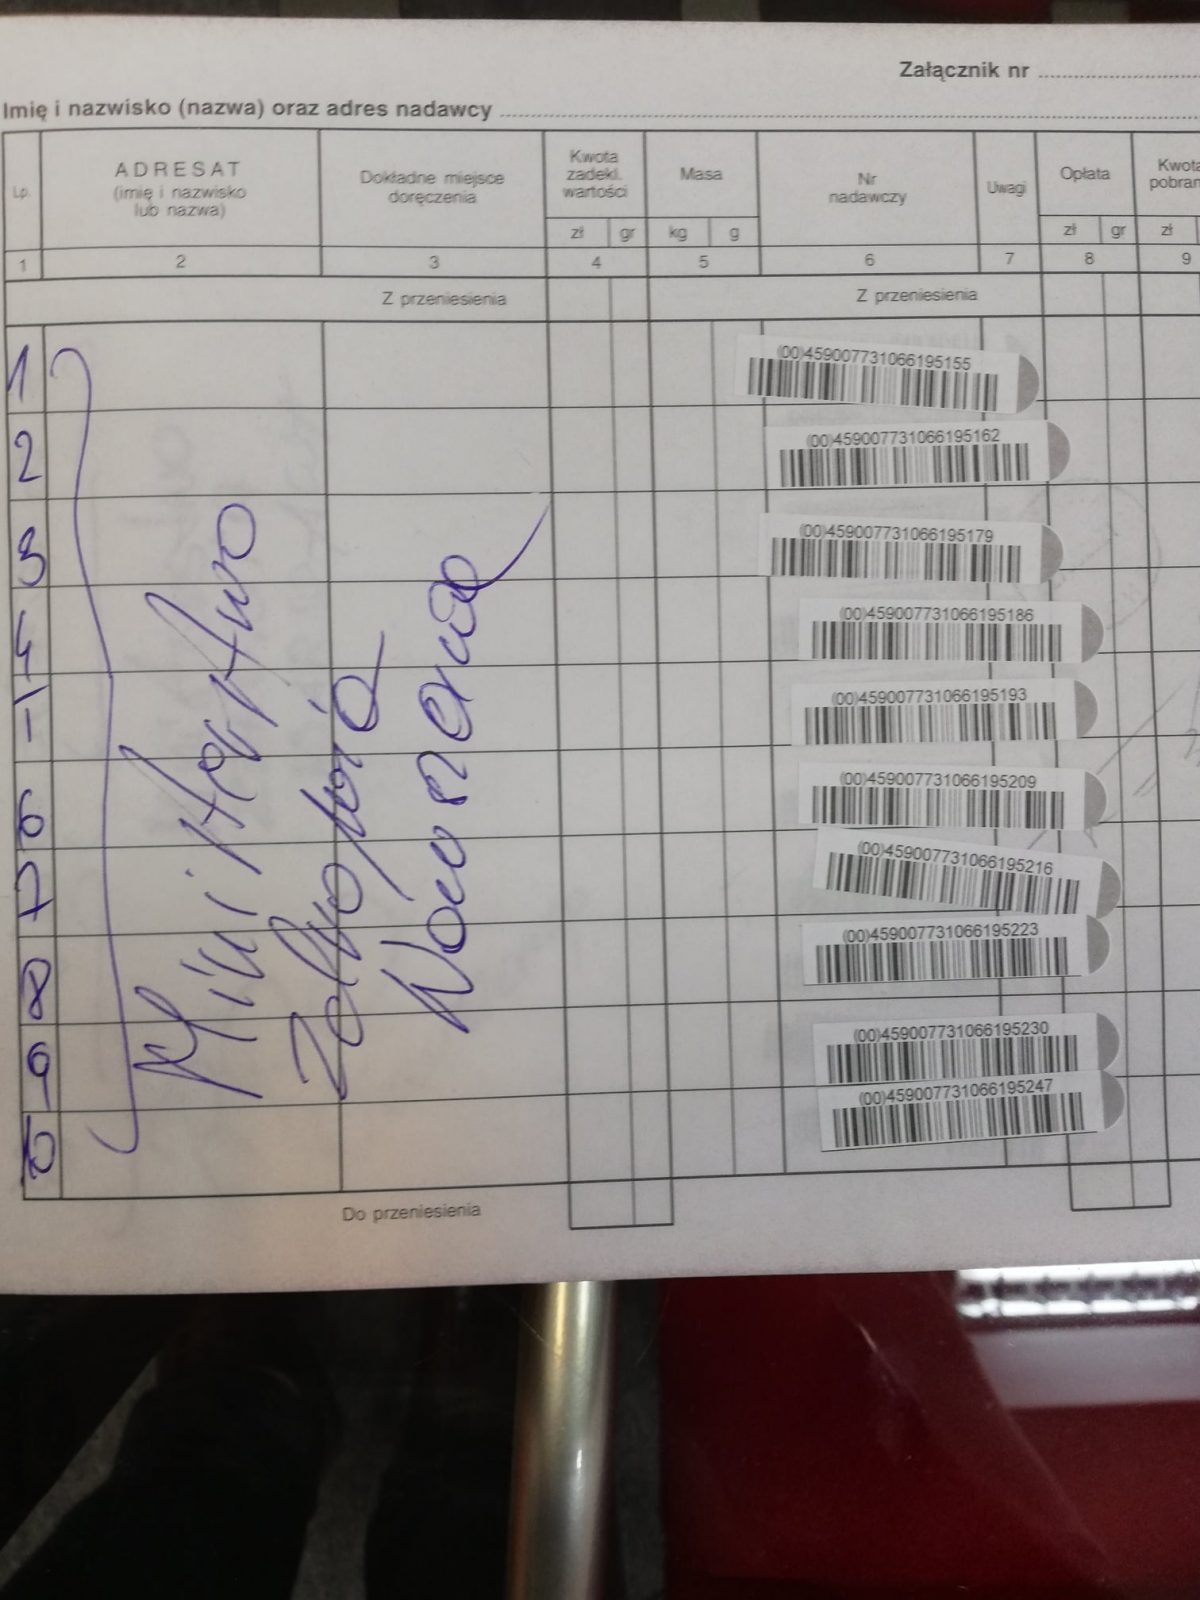 Załącznik nr
Imię i nazwisko (nazwa) oraz adres nadawcy
Lp.
ADRESAT
(imię i nazwisko
lub nazwa)
Dokładne miejsce
doręczenia
Kwota
zadekl.
wartości
zł gr
Masa
kg g
Nr
nadawczy
Uwagi
Opłata
zł gr
Kwota
pobran
zł
1 2 3 4 5 6 7 8 9
Z przeniesienia Z przeniesienia
1 (00)459007731066195155
2 (00)459007731066195162
3 (00)459007731066195179
4 (00)459007731066195186
(00)459007731066195193
6 (00)459007731066195209
7 (00)459007731066195216
8 (00)459007731066195223
9 (00)459007731066195230
10 (00)459007731066195247
Do przeniesienia